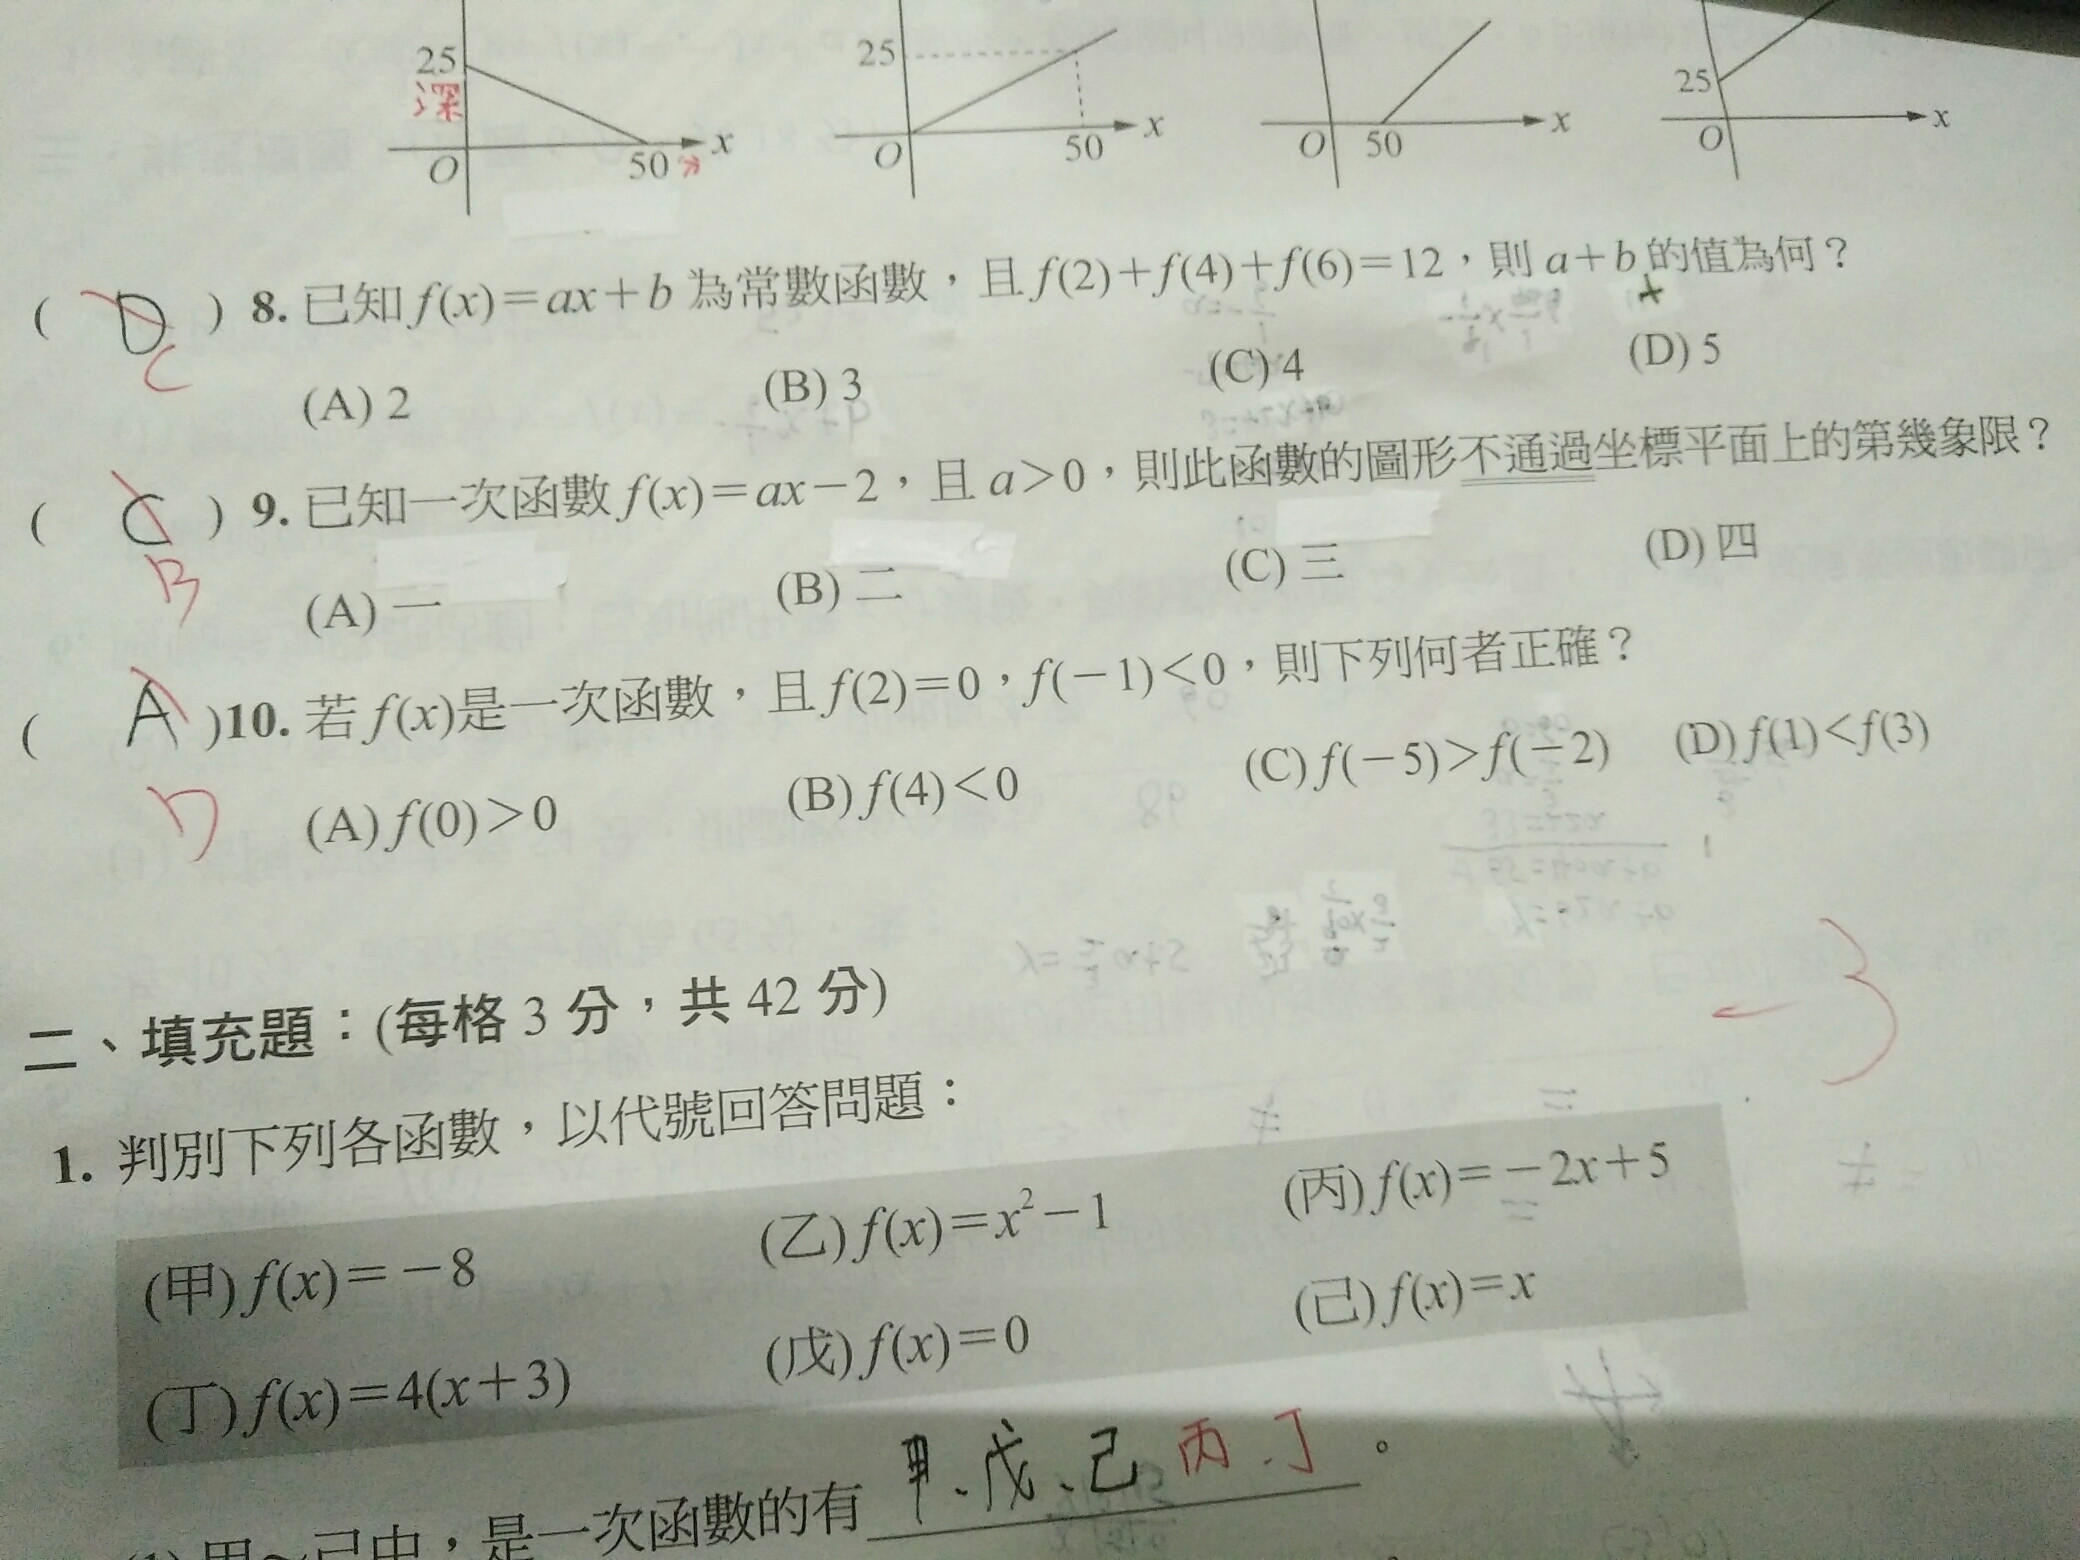 25 25 25
深
O 50 分 x O 50 x O 50 x O x
( D ) 8. 已知 f(x)=ax+b 為常數函數,且 f(2)+f(4)+f(6)=12,則 a+b 的值為何?
C
(A) 2 (B) 3 (C) 4 (D) 5
( C ) 9. 已知一次函數 f(x)=ax-2,且 a>0,則此函數的圖形不通過坐標平面上的第幾象限?
B
(A) 一 (B) 二 (C) 三 (D) 四
( A )10. 若 f(x)是一次函數,且 f(2)=0,f(-1)<0,則下列何者正確?
D
(A) f(0)>0 (B) f(4)<0 (C) f(-5)>f(-2) (D) f(1)<f(3)
-3
二、填充題:(每格 3 分,共 42 分)
1. 判別下列各函數,以代號回答問題:
(甲) f(x)=-8 (乙) f(x)=x²-1 (丙) f(x)=-2x+5
(丁) f(x)=4(x+3) (戊) f(x)=0 (己) f(x)=x
(1) 甲~己中,是一次函數的有 甲、戊、己 丙、丁 。